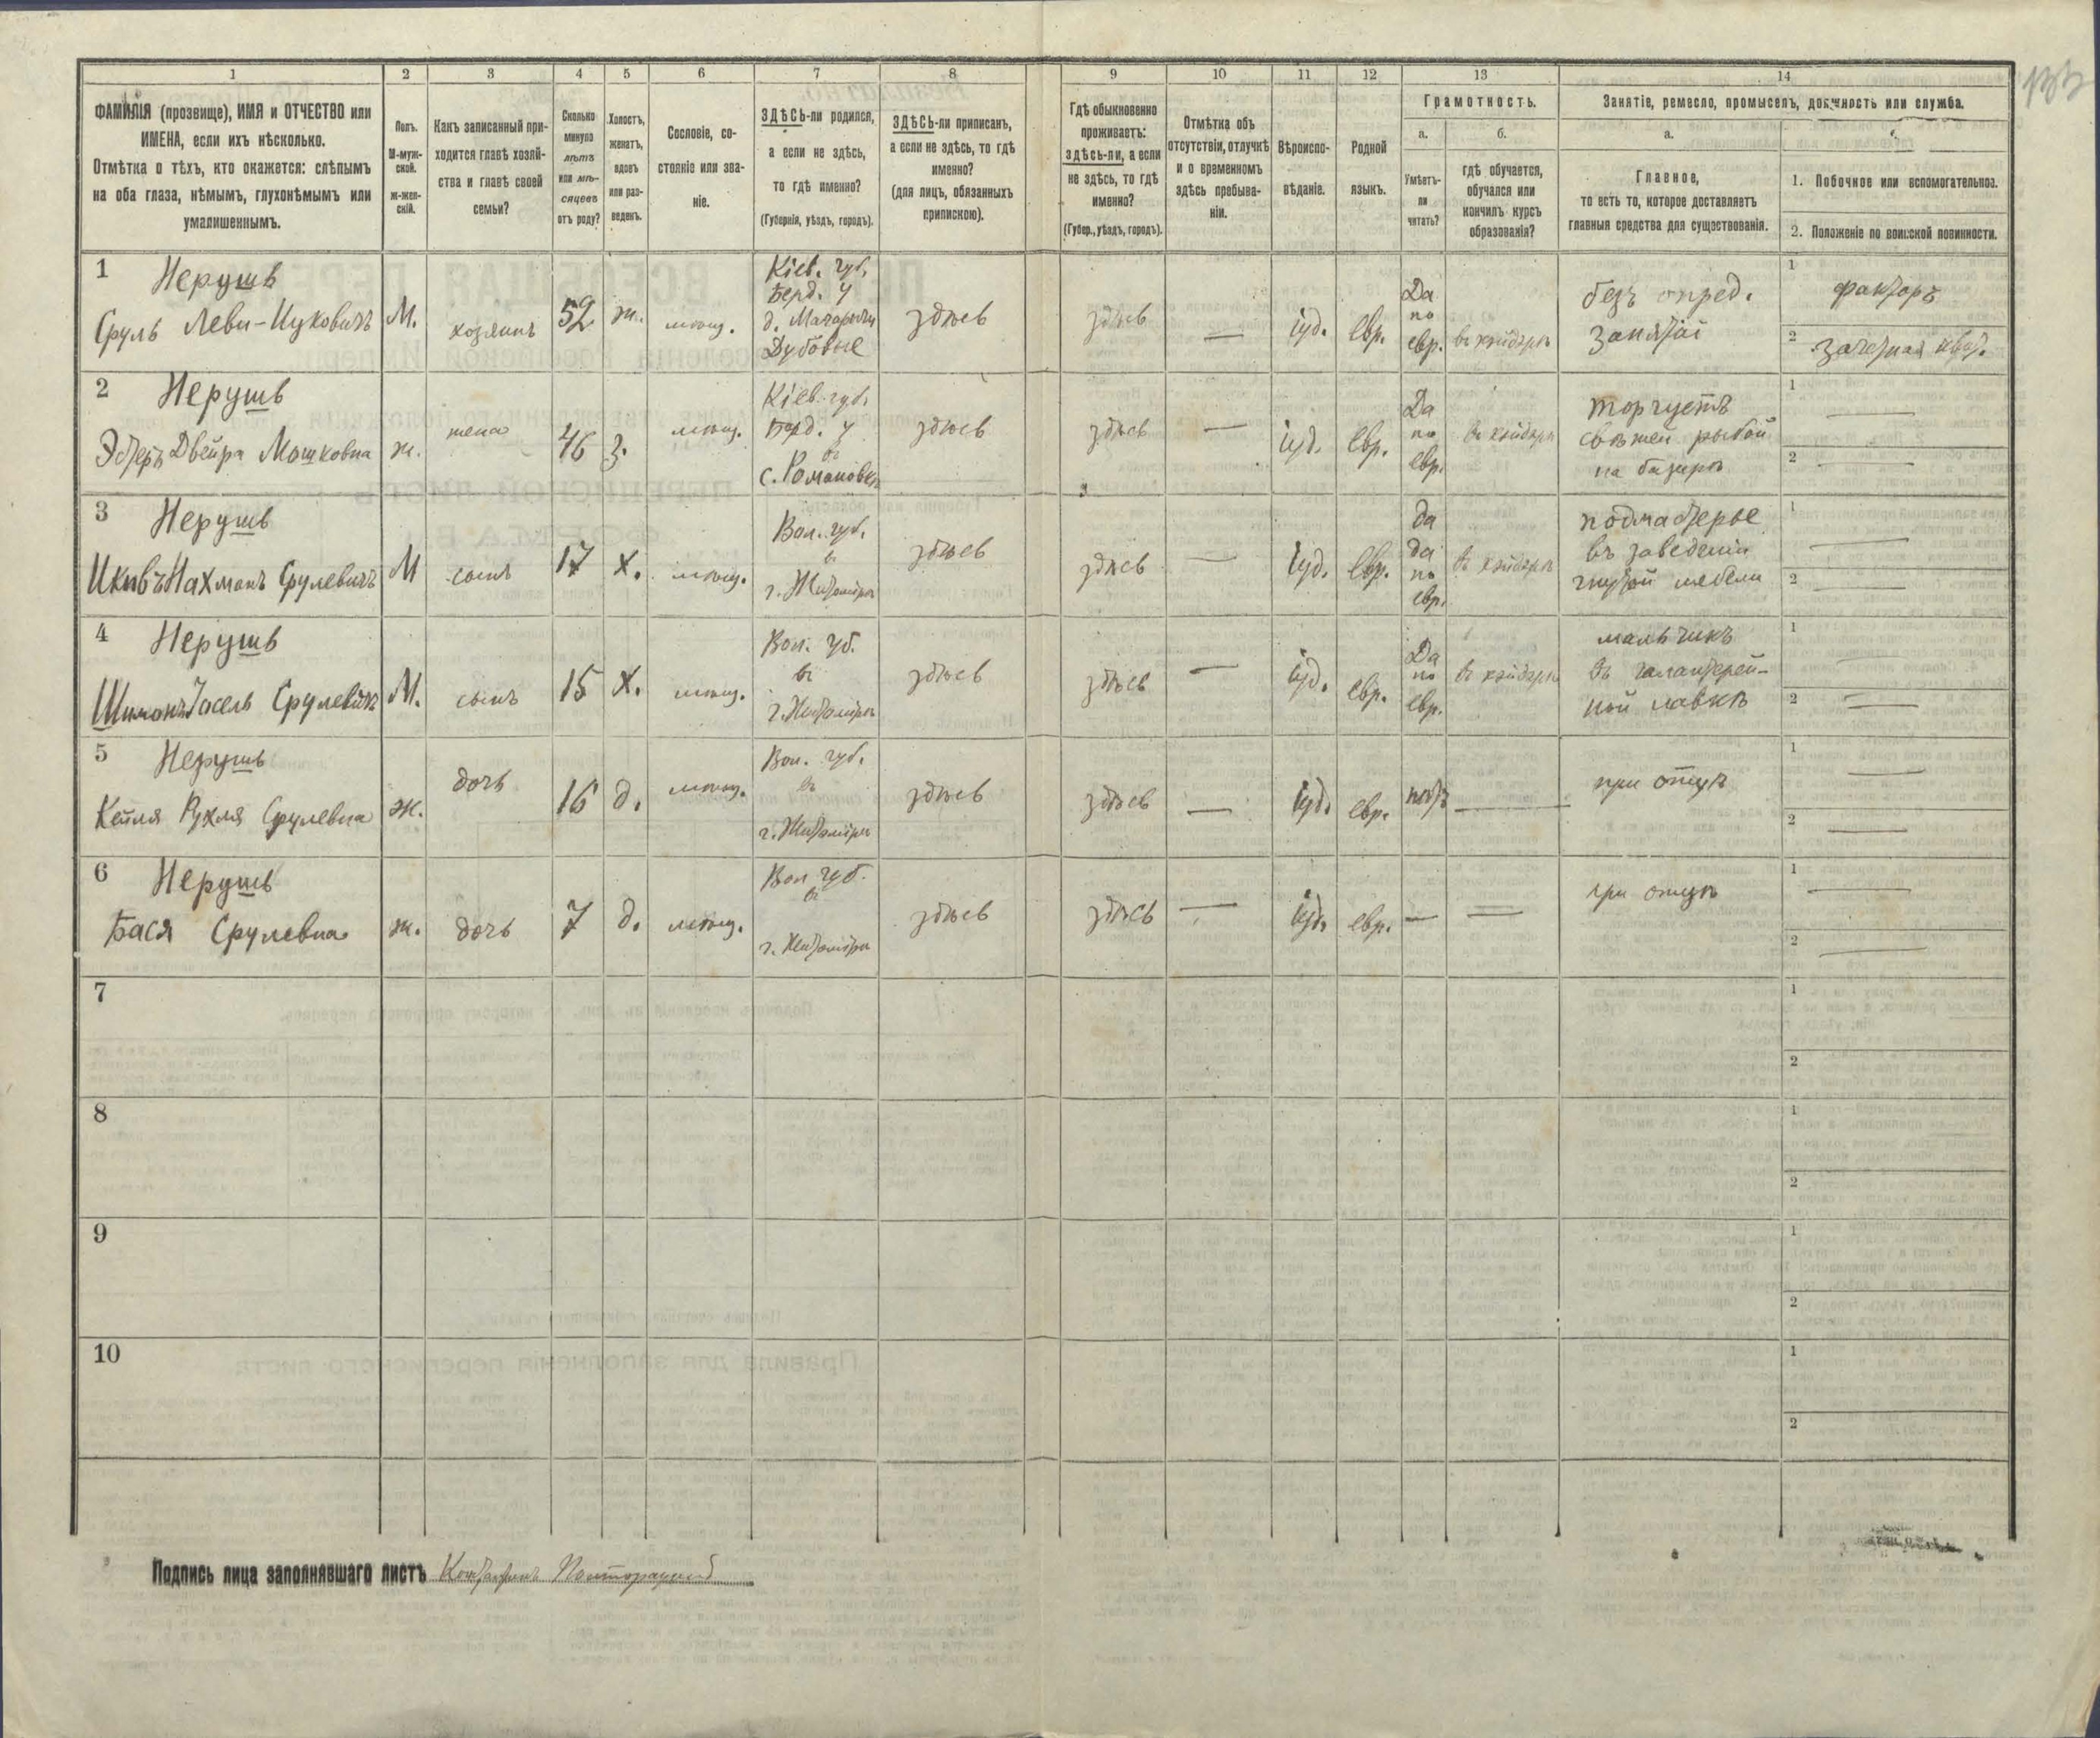 133
1 2 3 4 5 6 7 8 9 10 11 12 13 14
ФАМИЛІЯ (прозвище), ИМЯ и ОТЧЕСТВО или
ИМЕНА, если ихъ нѣсколько.
Отмѣтка о тѣхъ, кто окажется: слѣпымъ
на оба глаза, нѣмымъ, глухонѣмымъ или
умалишеннымъ.
Полъ.
М-муж-
ской.
Ж-жен-
скій.
Какъ записанный при-
ходится главѣ хозяй-
ства и главѣ своей
семьи?
Сколько
минуло
лѣтъ
или мѣ-
сяцевъ
отъ роду?
Холостъ,
женатъ,
вдовъ
или раз-
веденъ.
Сословіе, со-
стояніе или зва-
ніе.
ЗДѢСЬ-ли родился,
а если не здѣсь,
то гдѣ именно?
(Губернія, уѣздъ, городъ).
ЗДѢСЬ-ли приписанъ,
а если не здѣсь, то гдѣ
именно?
(для лицъ, обязанныхъ
припискою).
Гдѣ обыкновенно
проживаетъ:
здѣсь-ли, а если
не здѣсь, то гдѣ
именно?
(Губер., уѣздъ, городъ).
Отмѣтка объ
отсутствіи, отлучкѣ
и о временномъ
здѣсь пребыва-
ніи.
Вѣроиспо-
вѣданіе.
Родной
языкъ.
Грамотность.
а.
Умѣетъ-
ли
читать?
б.
гдѣ обучается,
обучался или
кончилъ курсъ
образованія?
Занятіе, ремесло, промыселъ, должность или служба.
а.
Главное,
то есть то, которое доставляетъ
главныя средства для существованія.
1. Побочное или вспомогательное.
2. Положеніе по воинской повинности.
1 Нерушъ
Сруль Леви-Ицковичъ
М.
хозяинъ
52
ж.
мѣщ.
Кіев. губ.
Берд. у
Дубовые
здѣсь
здѣсь
—
іуд.
евр.
Да
по
евр.
въ хэйдерѣ
безъ опред.
занятій
1 факторъ
2
2 Нерушъ
Эстеръ Двейра Мошковна
ж.
жена
46
з.
мѣщ.
Кіев. губ.
Берд. у
с. Романовкѣ
здѣсь
здѣсь
—
іуд.
евр.
Да
по
евр.
въ хэйдерѣ
торгуетъ
свѣжей рыбой
на базарѣ
1 —
2 —
3 Нерушъ
Нахманъ Срулевичъ
М
сынъ
17
х.
мѣщ.
Вол. губ.
въ
г. Житомірѣ
здѣсь
здѣсь
—
іуд.
евр.
да
да
по
евр.
въ хэйдерѣ
подмастерье
въ заведеніи
гнутой мебели
1 —
2 —
4 Нерушъ
Шимонъ Іосель Срулевичъ
М.
сынъ
15
х.
мѣщ.
Вол. губ.
въ
г. Житомірѣ
здѣсь
здѣсь
—
іуд.
евр.
Да
по
евр.
въ хэйдерѣ
мальчикъ
въ галантерей-
ной лавкѣ
1 —
2 —
5 Нерушъ
Кейля Рухля Срулевна
ж.
дочь
16
д.
мѣщ.
Вол. губ.
въ
г. Житомірѣ
здѣсь
здѣсь
—
іуд.
евр.
нѣтъ
—
при отцѣ
1 —
2 —
6 Нерушъ
Бася Срулевна
ж.
дочь
7
д.
мѣщ.
Вол. губ.
въ
г. Житомірѣ
здѣсь
здѣсь
—
іуд.
евр.
—
—
при отцѣ
1 —
2 —
7
1
2
8
1
2
9
1
2
10
1
2
Подпись лица заполнявшаго листъ